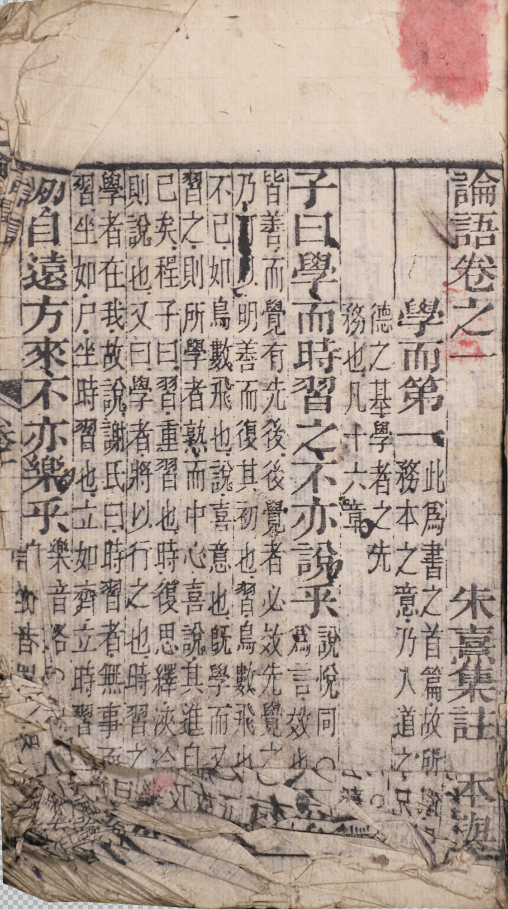 論語卷之一 朱熹集註 本
學而第一
此爲書之首篇故所
務本之意乃入道之
德之基學者之先
務也凡十六章
子曰學而時習之不亦說乎
說悅同○
爲言效也
皆善而覺有先後後覺者必效先覺之
乃可明善而復其初也習鳥數飛也
不已如鳥數飛也說喜意也旣學而又
習之則所學者熟而中心喜說其進自
己矣程子曰習重習也時復思繹浹洽
則說也又曰學者將以行之也時習之
學者在我故說謝氏曰時習者無事而
習坐如尸坐時習也立如齊立時習
朋自遠方來不亦樂乎
樂音洛○